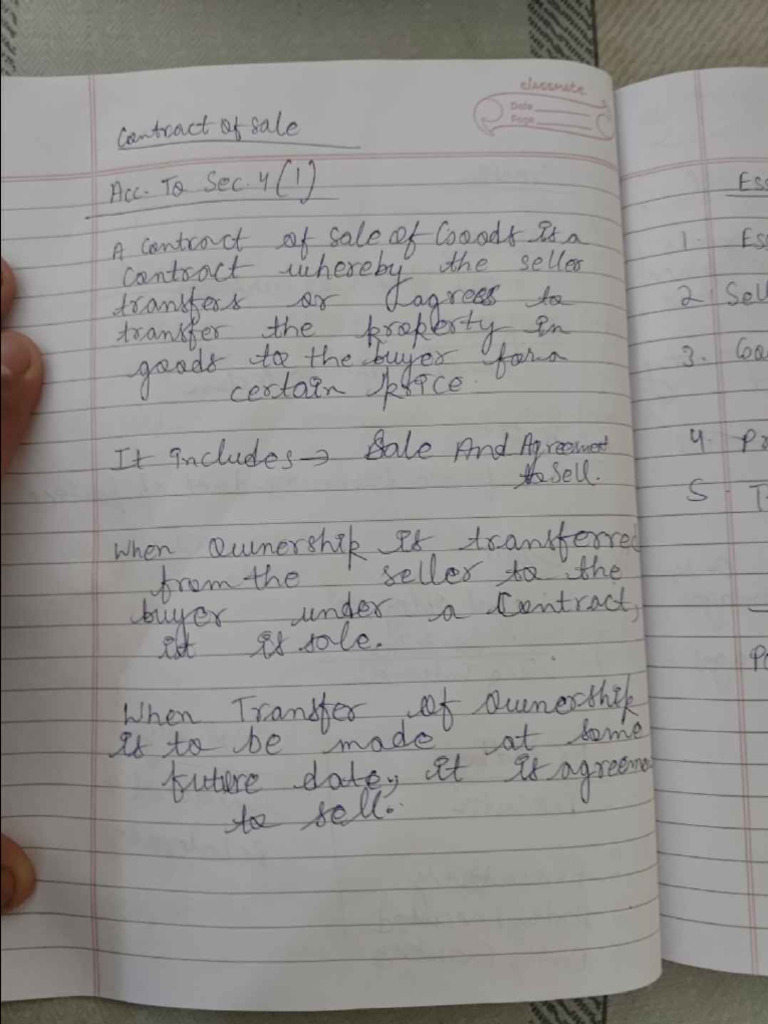 classmate
Date
Page
Contract of sale
Acc. To Sec. 4 (1)
A contract of sale of Goods is a
contract whereby the seller
transfers or agrees to
transfer the property in
goods to the buyer for a
certain price.
It includes → Sale And Agreement
to sell.
When Ownership is transferred
from the seller to the
buyer under a Contract,
it is sale.
When Transfer of Ownership
is to be made at some
future date, it is agreeme
to sell.
Ess
1. Ess
2 Sell
3. Goo
4. Pr
5 T